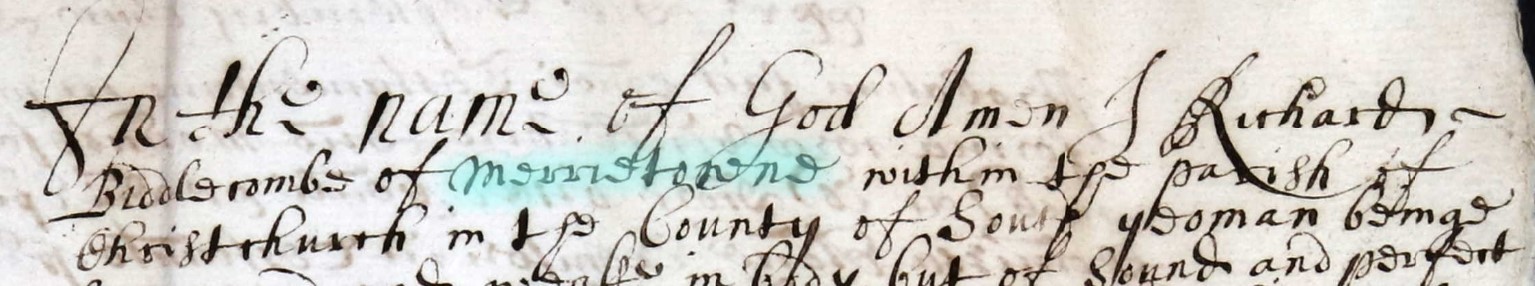 In the name of God Amen I Richard
Biddlecombe of Merrietowne within the parish of
Christchurch in the County of South yeoman beinge
weake in body but of sound and perfect